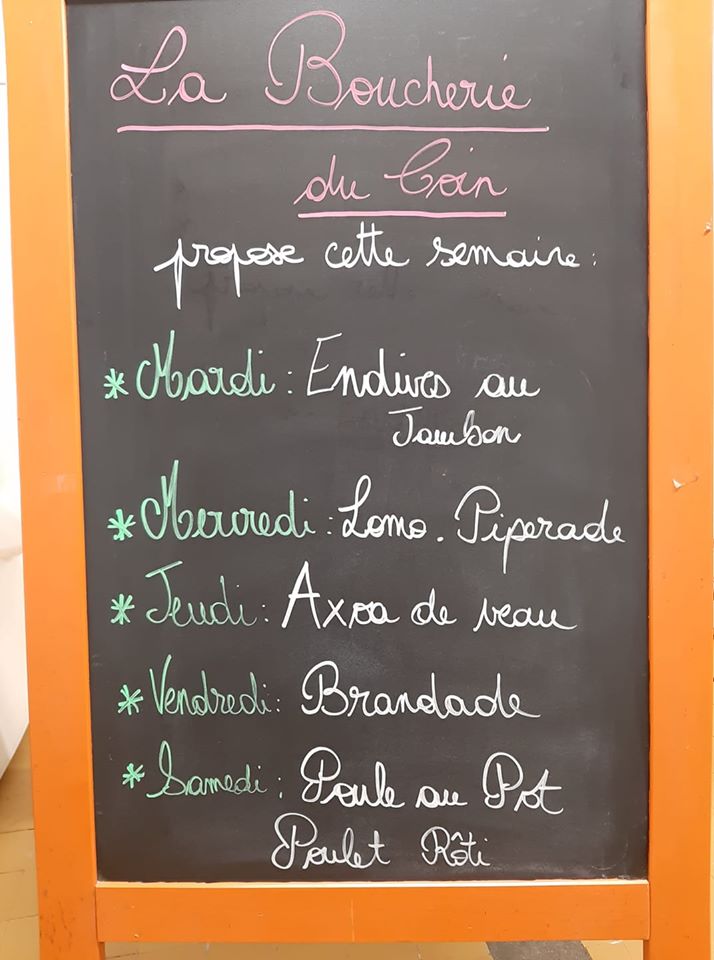 La Boucherie
du Coin
propose cette semaine :
* Mardi : Endives au
Jambon
* Mercredi : Lomo. Piperade
* Jeudi : Axoa de veau
* Vendredi : Brandade
* Samedi : Poule au Pot
Poulet Rôti